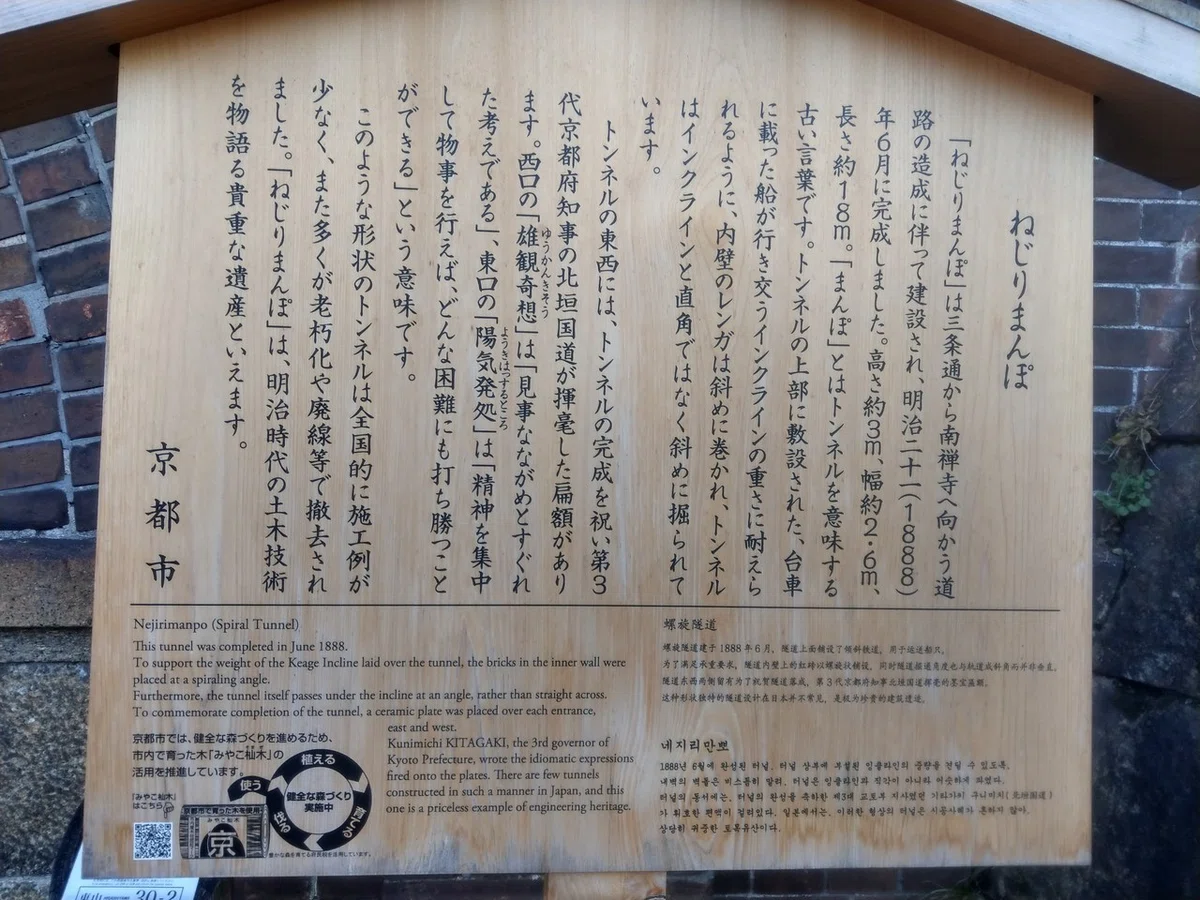 ねじりまんぽ
「ねじりまんぽ」は三条通から南禅寺へ向かう道
路の造成に伴って建設され、明治二十一(1888)
年6月に完成しました。高さ約3m、幅約2・6m、
長さ約18m。「まんぽ」とはトンネルを意味する
古い言葉です。トンネルの上部に敷設された、台車
に載った船が行き交うインクラインの重さに耐えら
れるように、内壁のレンガは斜めに巻かれ、トンネル
はインクラインと直角ではなく斜めに掘られて
います。
トンネルの東西には、トンネルの完成を祝い第3
代京都府知事の北垣国道が揮毫した扁額があり
ます。西口の「雄観奇想」は「見事なながめとすぐれ
ゆうかんきそう
た考えである」、東口の「陽気発処」は「精神を集中
ようきはっするところ
して物事を行えば、どんな困難にも打ち勝つこと
ができる」という意味です。
このような形状のトンネルは全国的に施工例が
少なく、また多くが老朽化や廃線等で撤去され
ました。「ねじりまんぽ」は、明治時代の土木技術
を物語る貴重な遺産といえます。
京都市
Nejirimanpo (Spiral Tunnel)
This tunnel was completed in June 1888.
To support the weight of the Keage Incline laid over the tunnel, the bricks in the inner wall were
placed at a spiraling angle.
Furthermore, the tunnel itself passes under the incline at an angle, rather than straight across.
To commemorate completion of the tunnel, a ceramic plate was placed over each entrance,
east and west.
Kunimichi KITAGAKI, the 3rd governor of
Kyoto Prefecture, wrote the idiomatic expressions
fired onto the plates. There are few tunnels
constructed in such a manner in Japan, and this
one is a priceless example of engineering heritage.
京都市では、健全な森づくりを進めるため、
市内で育った木「みやこ杣木」の
活用を推進しています。
「みやこ杣木」
はこちら
植える
育てる
伐る
使う
健全な森づくり
実施中
京都市で育った木を使用
みやこ杣木
京
豊かな森を育てる府民税を活用しています。
螺旋隧道
螺旋隧道建于1888年6月，隧道上面铺设了倾斜轨道，用于运送船只。
为了满足承重要求，隧道内壁上的红砖以螺旋状铺设，同时隧道掘通角度也与轨道成斜角而并非垂直。
隧道东西两侧留有为了祝贺隧道落成，第3代京都府知事北垣国道挥毫的墨宝匾额。
这种形状独特的隧道设计在日本并不常见，是极为珍贵的建筑遗迹。
네지리만뽀
1888년 6월에 완성된 터널. 터널 상부에 부설된 인클라인의 중량을 견딜 수 있도록,
내벽의 벽돌은 비스듬히 말려, 터널은 인클라인과 직각이 아니라 비슷하게 파였다.
터널의 동서에는, 터널의 완성을 축하한 제3대 교토부 지사였던 기타가이 구니미치(北垣国道)
가 휘호한 편액이 걸려있다. 일본에서는, 이러한 형상의 터널은 시공사례가 흔하지 않아,
상당히 귀중한 토목유산이다.
30-2